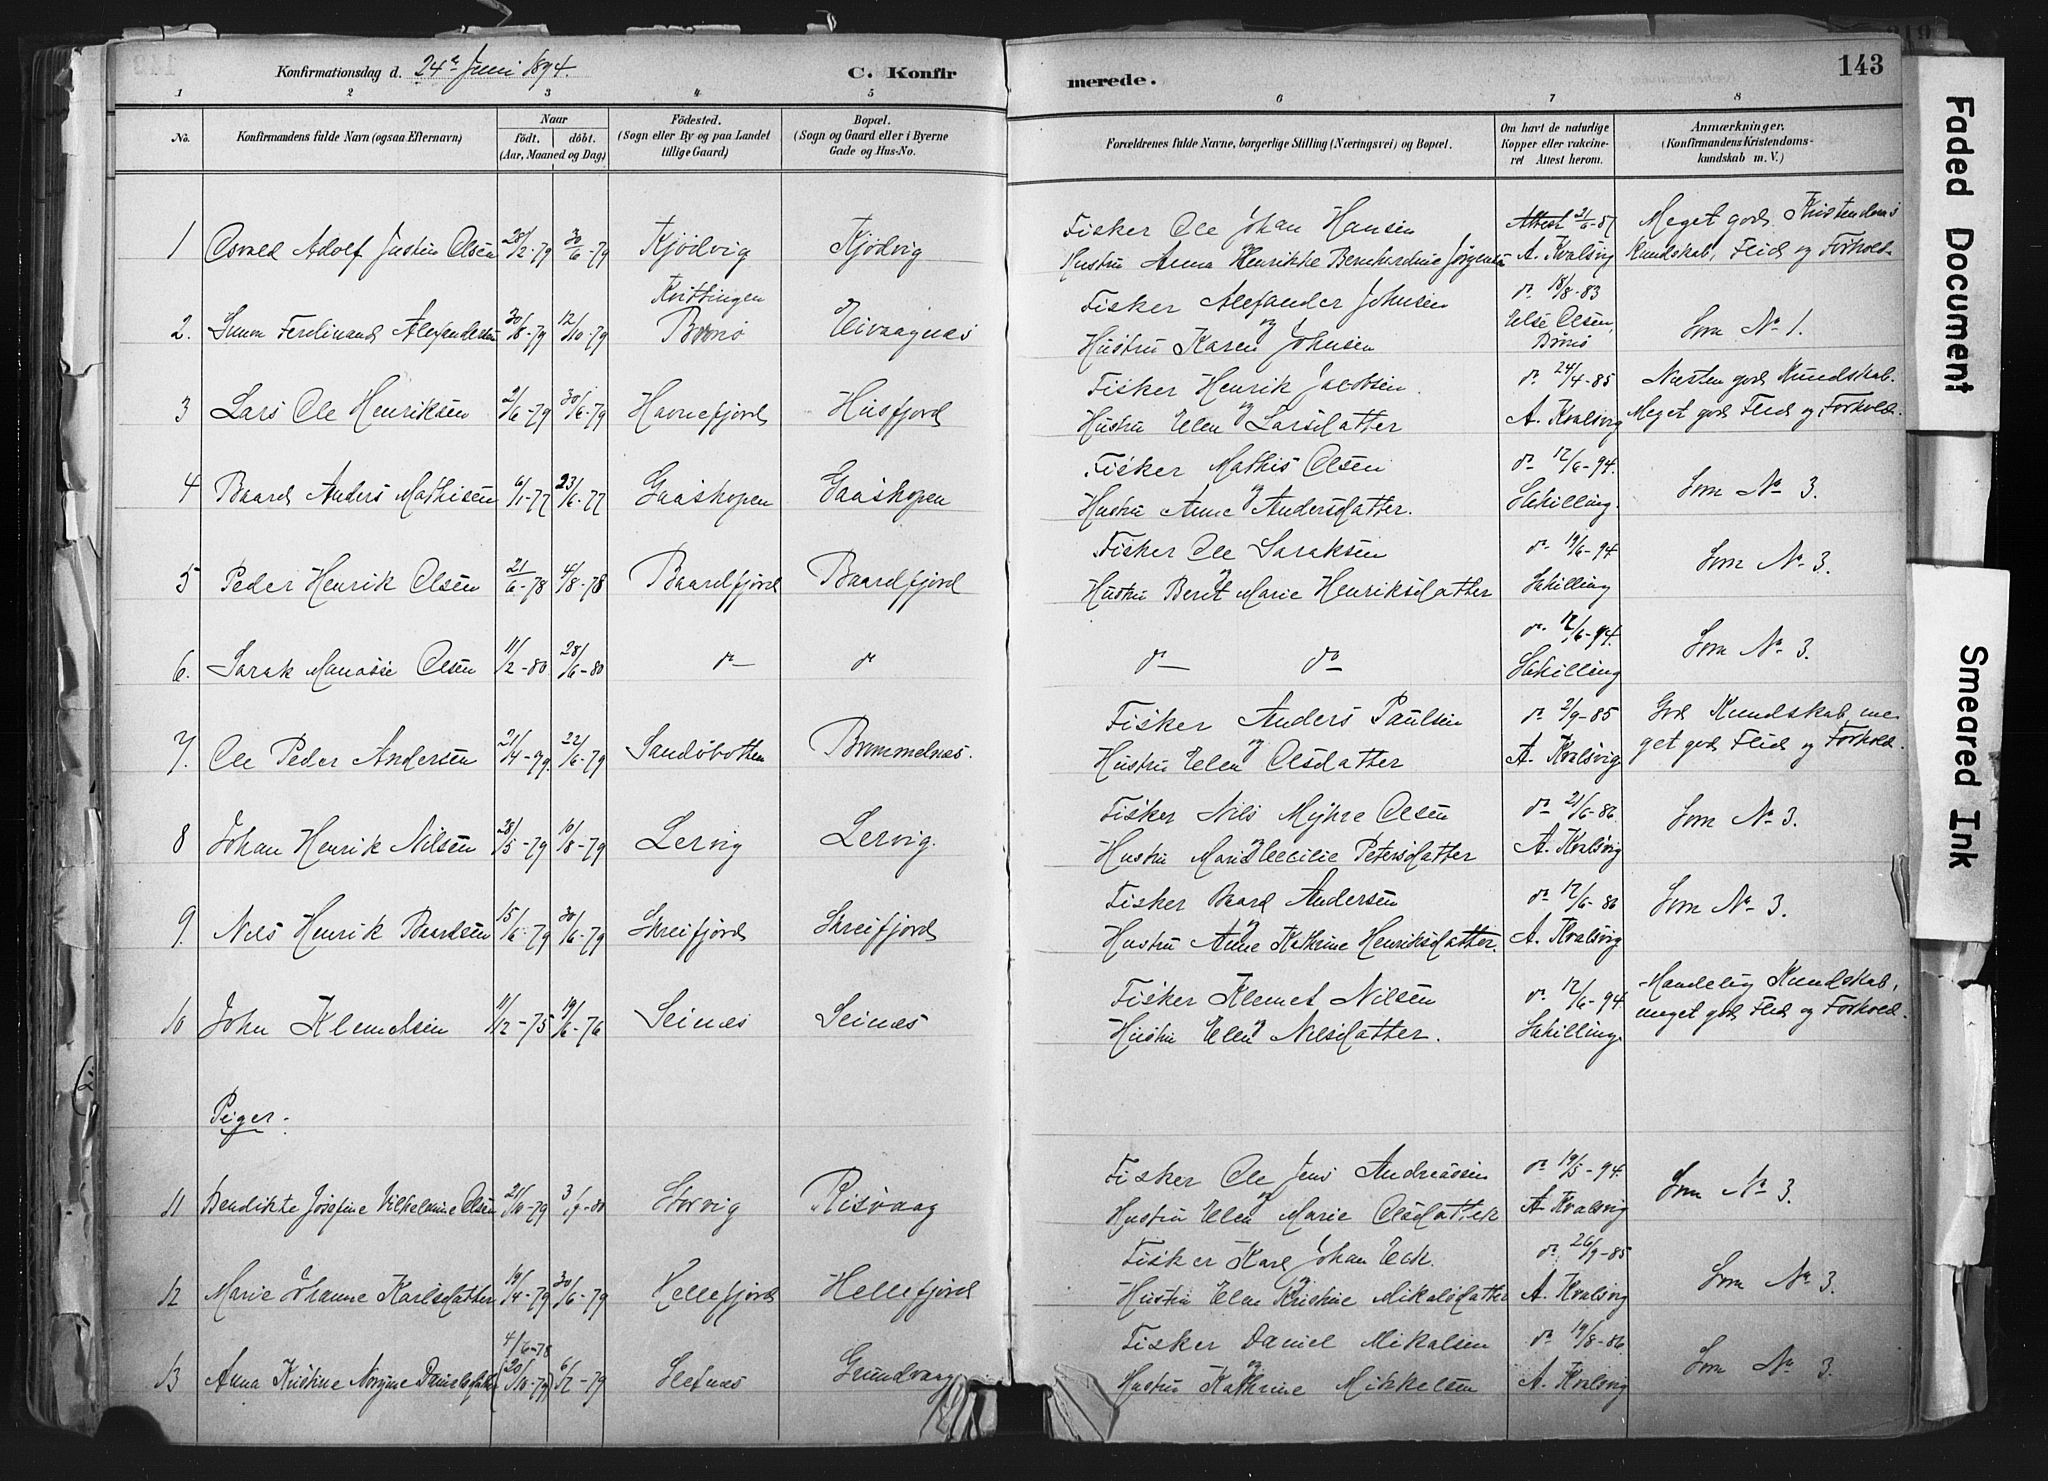 Konfirmationsdag d. 24de Juni 1894. C. Konfirmerede. 143
1 2 3 4 5 6 7 8
No. Konfirmandens fulde Navn (ogsaa Efternavn) Naar födt. döbt. (Aar, Maaned og Dag) Födested. (Sogn eller By og paa Landet tillige Gaard) Bopæl. (Sogn og Gaard eller i Byerne Gade og Hus-No. Forældrenes fulde Navne, borgerlige Stilling (Næringsvei) og Bopæl. Om havt de naturlige Kopper eller vakcineret Attest herom. Anmærkninger. (Konfirmandens Kristendomskundskab m. V.)
1 Osvald Adolf Justin Olsen 28/2-79 30/6-79 Kjödvig Kjödvig Fisker Ole Johan Hansen Attest 21/6-87 Meget god Kristendoms
Hustru Anna Henrikke Bernhardine Jörgensen A. Kvalsvig Kundskab, Flid og Forhold.
2. Simon Ferdinand Alexandersen 30/8-79 12/10-79 Kvittingen Brønö Elvaagnes Fisker Alexander Johnsen do 18/8-83
og Hustru Karen Johnsen Else Olsen, Brönö Som No 1.
3 Lars Ole Henriksen 2/6-79 30/6-79 Havnefjord Husfjord Fisker Henrik Jacobsen do 24/4-85 Næsten god Kundskab.
og Hustru Elen Larsdatter A. Kvalsvig Meget god Flid og Forhold.
4 Baard Anders Mathisen 6/1-77 23/6-77 Gaashopen Gaashopen Fisker Mathis Olsen do 12/6-94.
og Hustru Anne Andersdatter. Schilling. Som No 3.
5 Peder Henrik Olsen 21/6-78 4/8-78 Baardfjord Baardfjord Fisker Ole Saraksen do 19/6-94
og Hustru Berit Marie Henriksdatter Schilling Som No 3.
6. Sarak Manasse Olsen 11/2-80 28/6-80 do do do do do 12/6-94.
Schilling Som No 3.
7. Ole Peder Andersen 21/4-79. 22/6-79 Sandöbotten Brommelnæs. Fisker Anders Paulsen do 2/9-85 God Kundskab, me-
og Hustru Elen Olsdatter A. Kvalsvig get god Flid og Forhold.
8 Johan Henrik Nilsen 28/5-79 10/8-79 Lervig Lervig. Fisker Nils Myhre Olsen do 21/6-86. Som No 3.
og Hustru Marie Cecilie Petersdatter A. Kvalsvig
9. Nils Henrik Baardsen 15/6-79 30/6-79 Skreifjord Skreifjord Fisker Baard Andersen do 12/6-86 Som No 3.
og Hustru Anne Kathrine Henriksdatter. A. Kvalsvig
10 John Klemetsen 11/12-75 19/6-76 Seinæs Seinæs Fisker Klemet Nilsen do 12/6-94 Maadelig Kundskab,
og Hustru Elen Nilsdatter. Schilling. meget god Flid og Forhold.
Piger.
11 Bendikte Josefine Vilhelmine Olsen 21/10-79 3/9-80 Storvig Risvaag Fisker Ole Jens Andreassen do 19/5-94. Som No 3.
og Hustru Elen Marie Olsdatter A. Kvalsvig
12 Marie Johanne Karlsdatter 19/4-79 30/6-79 Hellefjord Hellefjord Fisker Karl Johan Eck. do 26/9-85
og Hustru Elen Kristine Mikalsdatter A. Kvalsvig Som No 3.
4/6-78
13 Anna Kristine Norgine Danielsdatter (20/10-79) 6/12-79 Slefnæs Grundvaag Fisker Daniel Mikalsen do 19/8-86.
og Hustru Kathrine Mikkelsen A. Kvalsvig Som No 3.
Faded Document
Smeared Ink